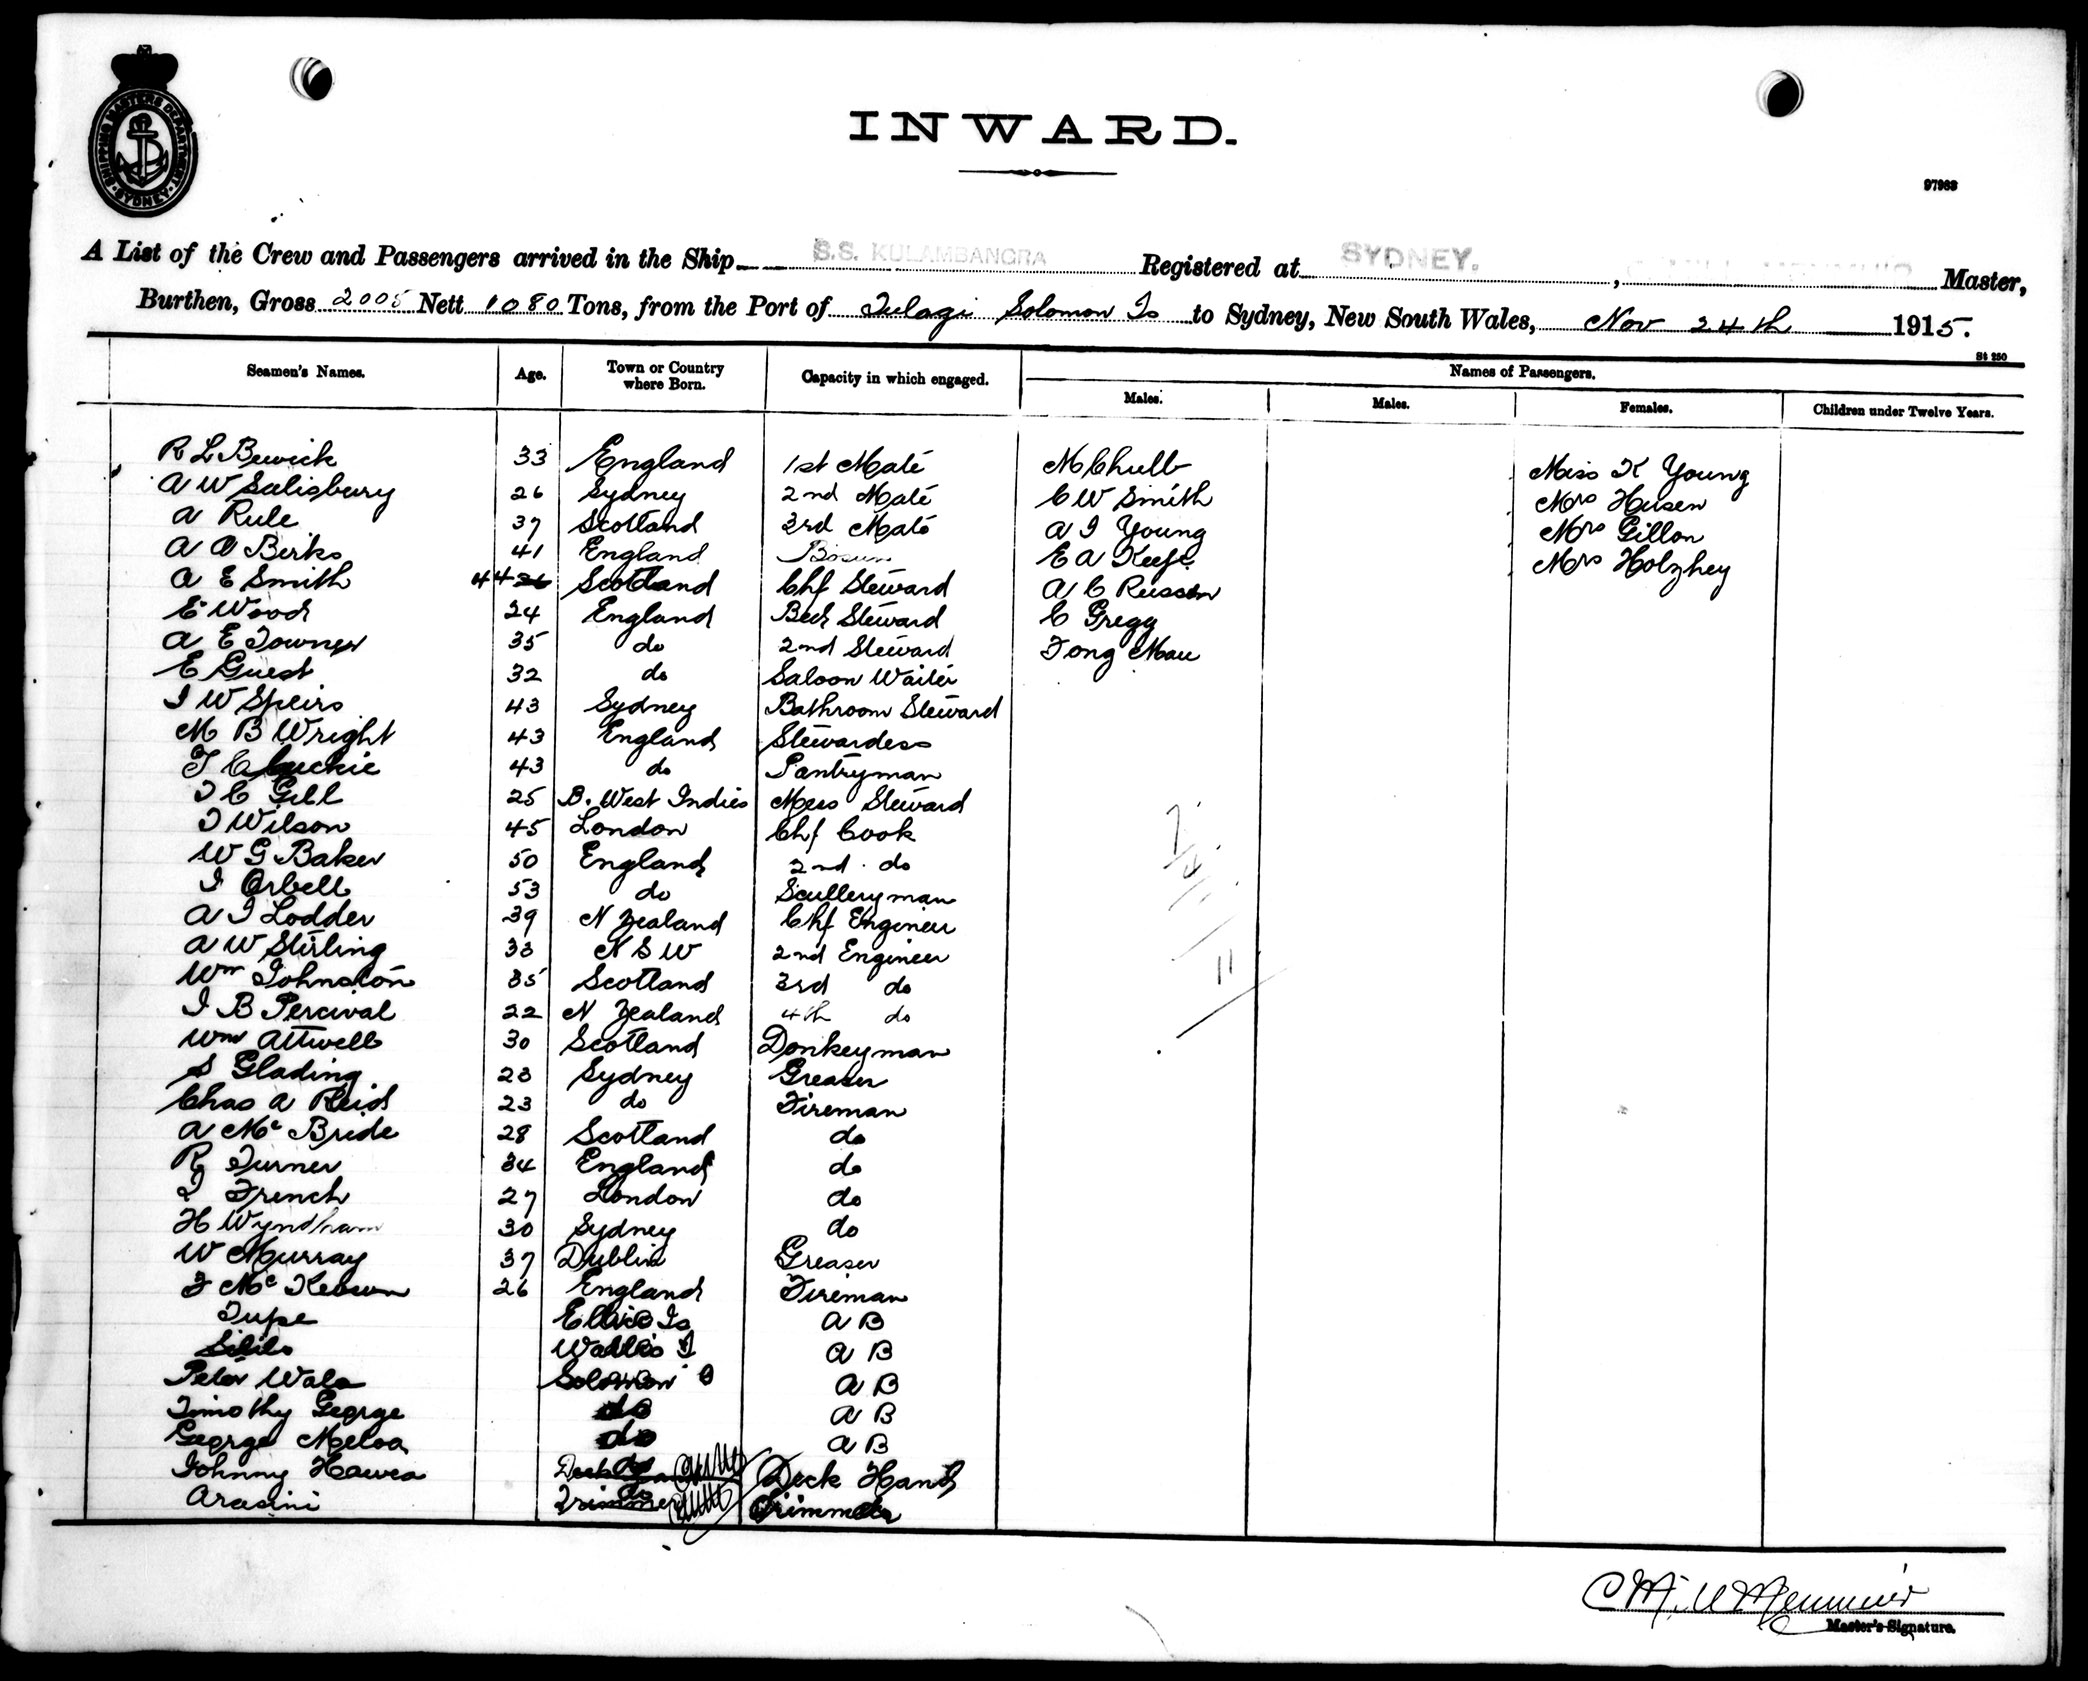 SHIPPING MASTERS DEPARTMENT SYDNEY
INWARD.
97963
A List of the Crew and Passengers arrived in the Ship S.S. KULAMBANGRA Registered at SYDNEY. , Master,
Burthen, Gross 2005 Nett 1080 Tons, from the Port of Tulagi Solomon Is to Sydney, New South Wales, Nov 24th 1915.
St 250
Seamen's Names. Age. Town or Country where Born. Capacity in which engaged. Names of Passengers.
Males. Males. Females. Children under Twelve Years.
R L Bewick 33 England 1st Mate M Chubb Miss K Young
A W Salisbury 26 Sydney 2nd Mate C W Smith Mrs Husen
A Rule 37 Scotland 3rd Mate A J Young Mrs Gillon
A A Berks 41 England Bosun E A Keefe Mrs Holzhey
A E Smith 44 26 Scotland Chf Steward A C
E Wood 24 England Bed Steward C Gregg
A E Towner 35 do 2nd Steward Fong Mau
E Guest 32 do Saloon Waiter
J W Speirs 43 Sydney Bathroom Steward
M B Wright 43 England Stewardess
T C Luckie 43 do Pantryman
J C Gill 25 B. West Indies Mess Steward
J Wilson 45 London Chf Cook
W G Baker 50 England 2nd do
J Orbell 53 do Sculleryman
A J Lodder 39 N Zealand Chf Engineer
A W Stirling 33 N S W 2nd Engineer
Wm Johnston 35 Scotland 3rd do
J B Percival 22 N Zealand 4th do
Wm Attwell 30 Scotland Donkeyman
S Glading 23 Sydney Greaser
Chas A Reid 23 do Fireman
A Mc Bride 28 Scotland do
R Turner 34 England do
J French 27 London do
H Wyndham 30 Sydney do
W Murray 37 Dublin Greaser
F Mc Keown 26 England Fireman
Tupe Ellice Is A B
Wallis I A B
Peter Wala Solomon A B
Timothy George do A B
George Meloa do A B
Johnny Hawea do Deck Hand
Arasini do Trimmer
7
4
11
Master's Signature.